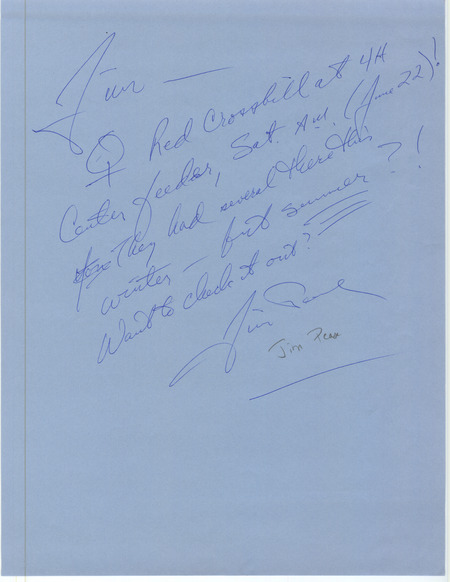 Jim —
♀ Red Crossbill at 4H
Center feeder, Sat. A.M. (June 22)!
They had several there this
winter — but summer?!
Want to check it out?
Jim
Jim